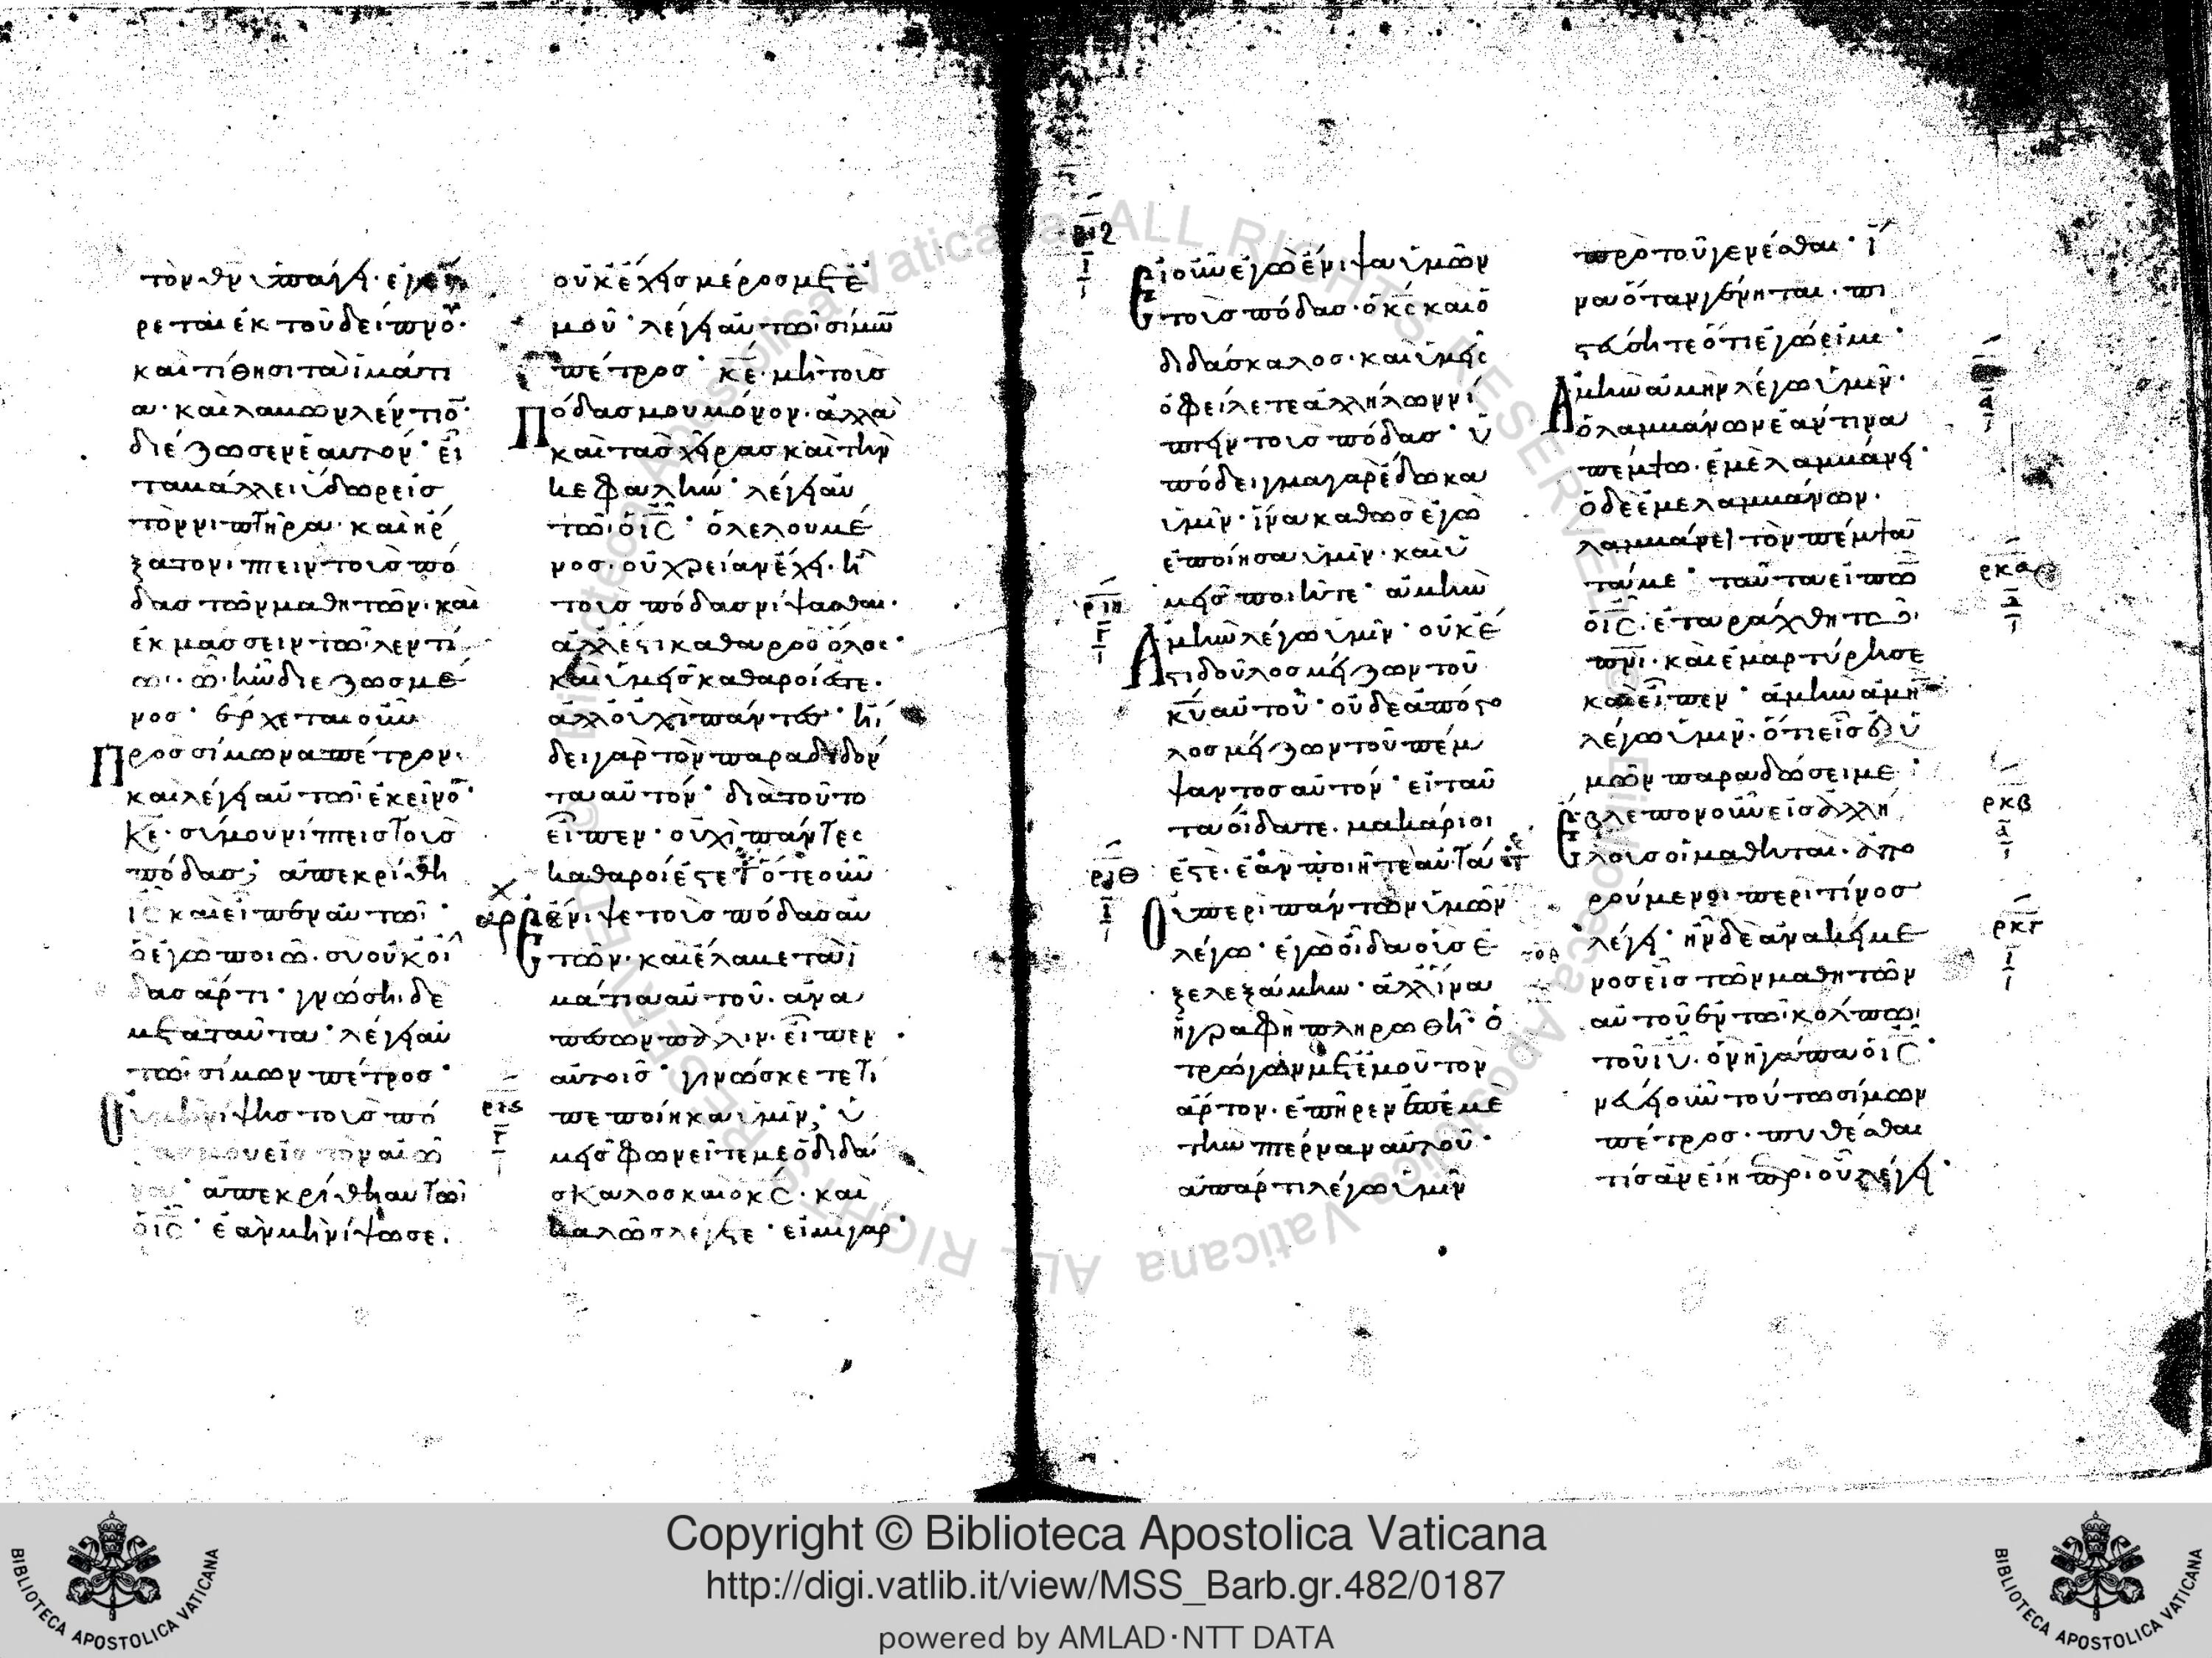 τὸν θν ὑπάγει· ἐγεί
ρεται ἐκ τοῦ δείπνου·
καὶ τίθησι τὰ ἱμάτι
α· καὶ λαβὼν λέντιον·
διέζωσεν ἑαυτόν· εἶ
τα βάλλει ὕδωρ εἰς
τὸν νιπτῆρα· καὶ ἤρ
ξατο νίπτειν τοὺς πό
δας τῶν μαθητῶν· καὶ
ἐκμάσσειν τῶ λεντί
ω· ὧ ἦν διεζωσμέ
νος· ἔρχεται οὖν
πρὸς σίμωνα πέτρον·
καὶ λέγει αὐτῶ ἐκεῖνος·
κε· σύ μου νίπτεις τοὺς
πόδας; ἀπεκρίθη
ις καὶ εἶπεν αὐτῶ·
ὃ ἐγὼ ποιῶ· σὺ οὐκ οἶ
δας ἄρτι· γνώση δὲ
μετὰ ταῦτα· λέγει αὐ
τῶ σίμων πέτρος·
οὐ μὴ νίψης τοὺς πό
δας μου εἰς τὸν αἰῶ
να· ἀπεκρίθη αὐτῶ
ὁ ις· ἐὰν μὴ νίψω σε·
οὐκ ἔχεις μέρος μετ ἐ
μοῦ· λέγει αὐτῶ σίμων
πέτρος· κε· μὴ τοὺς
πόδας μου μόνον· ἀλλὰ
καὶ τὰς χεῖρας καὶ τὴν
κεφαλήν· λέγει αὐ
τῶ ὁ ις· ὁ λελουμέ
νος· οὐ χρείαν ἔχει· ἢ
τοὺς πόδας νίψασθαι·
ἀλλ ἔστι καθαρὸς ὅλος·
καὶ ὑμεῖς καθαροί ἐστε·
ἀλλ οὐχὶ πάντες· ἤ
δει γὰρ τὸν παραδιδόν
τα αὐτόν· διὰ τοῦτο
εἶπεν· οὐχὶ πάντες
καθαροί ἐστε· ὅτε οὖν
ἔνιψε τοὺς πόδας αὐ
τῶν· καὶ ἔλαβε τὰ ἱ
μάτια αὐτοῦ· ἀνα
πεσὼν πάλιν· εἶπεν
αὐτοῖς· γινώσκετε τί
ριϛ
γ
πεποίηκα ὑμῖν; ὑ
μεῖς φωνεῖτέ με ὁ διδά
σκαλος καὶ ὁ κς· καὶ
καλῶς λέγετε· εἰμὶ γάρ·
ριζ
εἰ οὖν ἐγὼ ἔνιψα ὑμῶν
τοὺς πόδας· ὁ κς καὶ ὁ
διδάσκαλος· καὶ ὑμεῖς
ὀφείλετε ἀλλήλων νί
πτειν τοὺς πόδας· ὑ
πόδειγμα γὰρ ἔδωκα
ὑμῖν· ἵνα καθὼς ἐγὼ
ἐποίησα ὑμῖν· καὶ ὑ
μεῖς ποιῆτε· ἀμὴν
ριη
γ
ἀμὴν λέγω ὑμῖν· οὐκ ἔ
στι δοῦλος μείζων τοῦ
κυ αὐτοῦ· οὐδὲ ἀπόστο
λος μείζων τοῦ πέμ
ψαντος αὐτόν· εἰ ταῦ
τα οἴδατε· μακάριοί
ριθ
ἐστε· ἐὰν ποιῆτε αὐτά·
οὐ περὶ πάντων ὑμῶν
λέγω· ἐγὼ οἶδα οὓς ἐ
ξελεξάμην· ἀλλ ἵνα
ἡ γραφὴ πληρωθῆ· ὁ
τρώγων μετ ἐμοῦ τὸν
ἄρτον· ἐπῆρεν ἐπ ἐμὲ
τὴν πτέρναν αὐτοῦ·
ἀπ ἄρτι λέγω ὑμῖν
πρὸ τοῦ γενέσθαι· ἵ
να ὅταν γένηται· πι
στεύσητε ὅτι ἐγώ εἰμι·
ἀμὴν ἀμὴν λέγω ὑμῖν·
ὁ λαμβάνων ἐάν τινα
πέμψω· ἐμὲ λαμβάνει·
ὁ δὲ ἐμὲ λαμβάνων·
λαμβάνει τὸν πέμψαν
τά με· ταῦτα εἰπὼν
ρκα
ὁ ις· ἐταράχθη τῶ
πνι· καὶ ἐμαρτύρησε
καὶ εἶπεν· ἀμὴν ἀμὴν
λέγω ὑμῖν· ὅτι εἷς ἐξ ὑ
μῶν παραδώσει με·
ρκβ
ἔβλεπον οὖν εἰς ἀλλή
λους οἱ μαθηταί· ἀπο
ρούμενοι περὶ τίνος
ρκγ
λέγει· ἦν δὲ ἀνακείμε
νος εἷς τῶν μαθητῶν
αὐτοῦ ἐν τῶ κόλπω
τοῦ ιυ· ὃν ἠγάπα ὁ ις·
νεύει οὖν τούτω σίμων
πέτρος· πυθέσθαι
τίς ἂν εἴη περὶ οὗ λέγει·
Copyright © Biblioteca Apostolica Vaticana
http://digi.vatlib.it/view/MSS_Barb.gr.482/0187
powered by AMLAD·NTT DATA
BIBLIOTECA APOSTOLICA VATICANA
BIBLIOTECA APOSTOLICA VATICANA